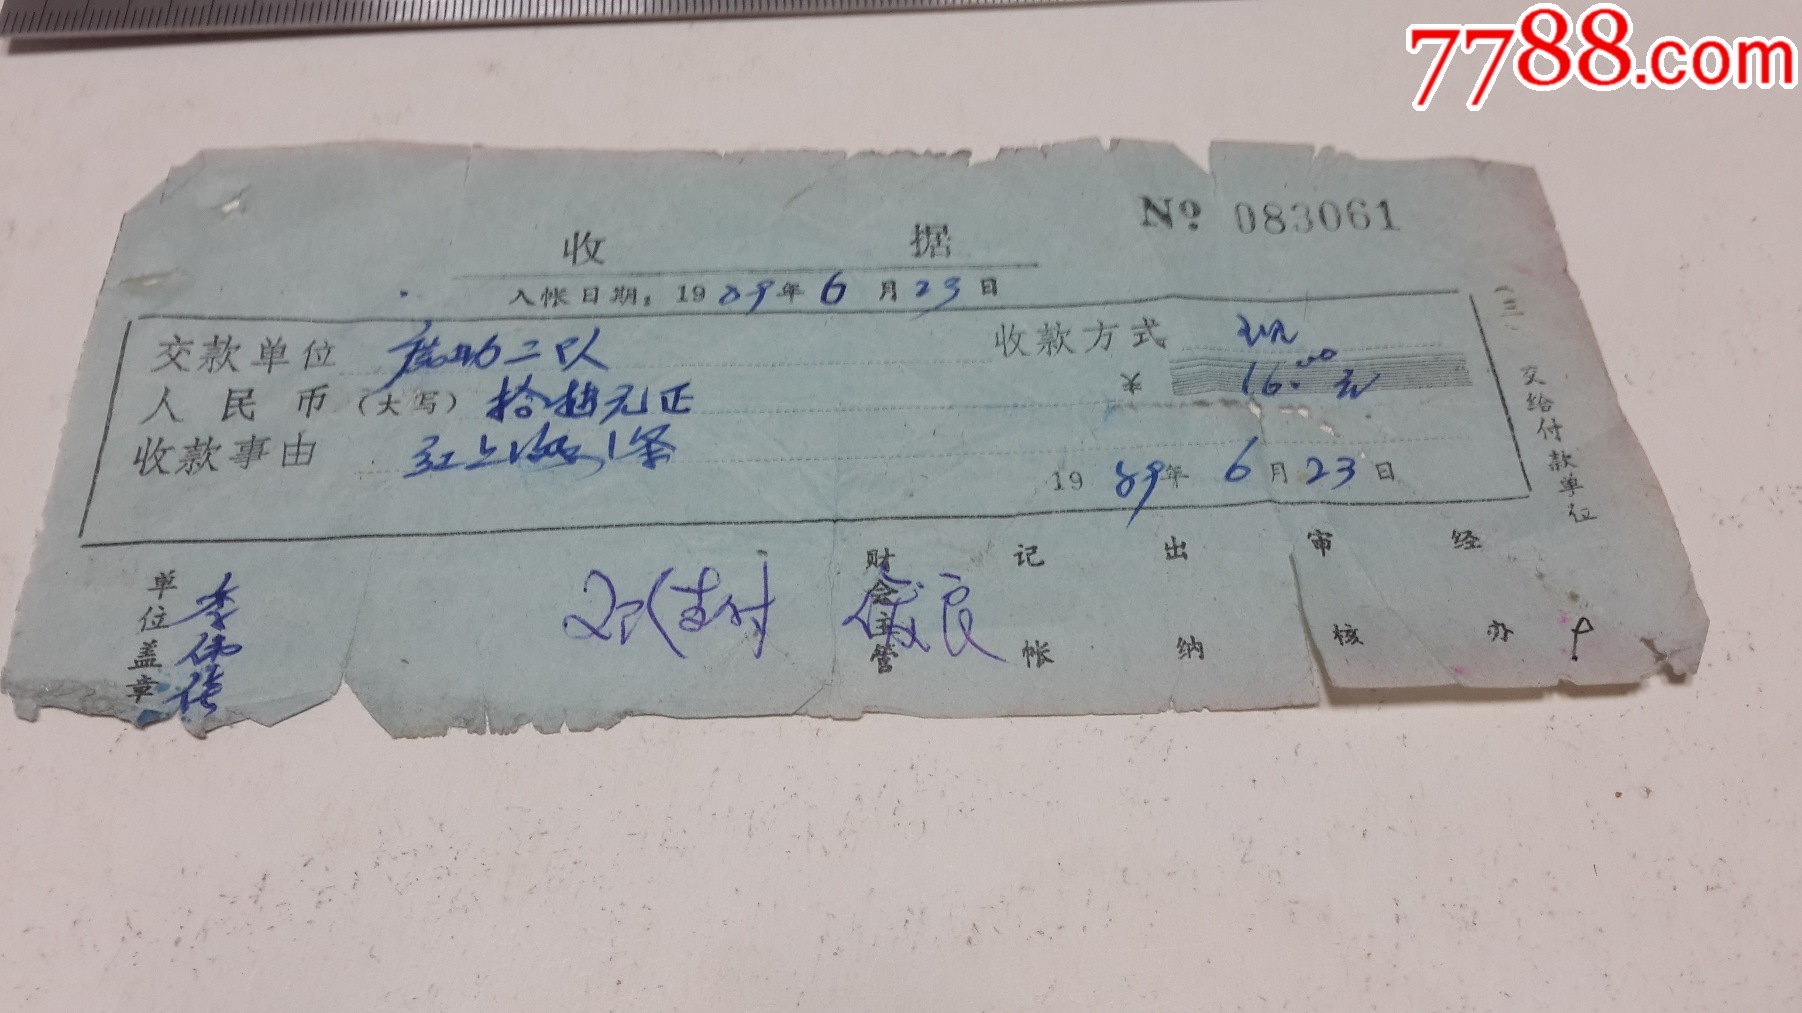 7788.com
№ 083061
收 据
入帐日期：1989年6月23日
交款单位 二队 收款方式 现
人民币（大写）拾陆元正 ¥ 16.00元
收款事由 红上海1条
1989年6月23日
（三）交给付款单位
单位盖章 李
支付 良
财会主管 记帐 出纳 审核 经办